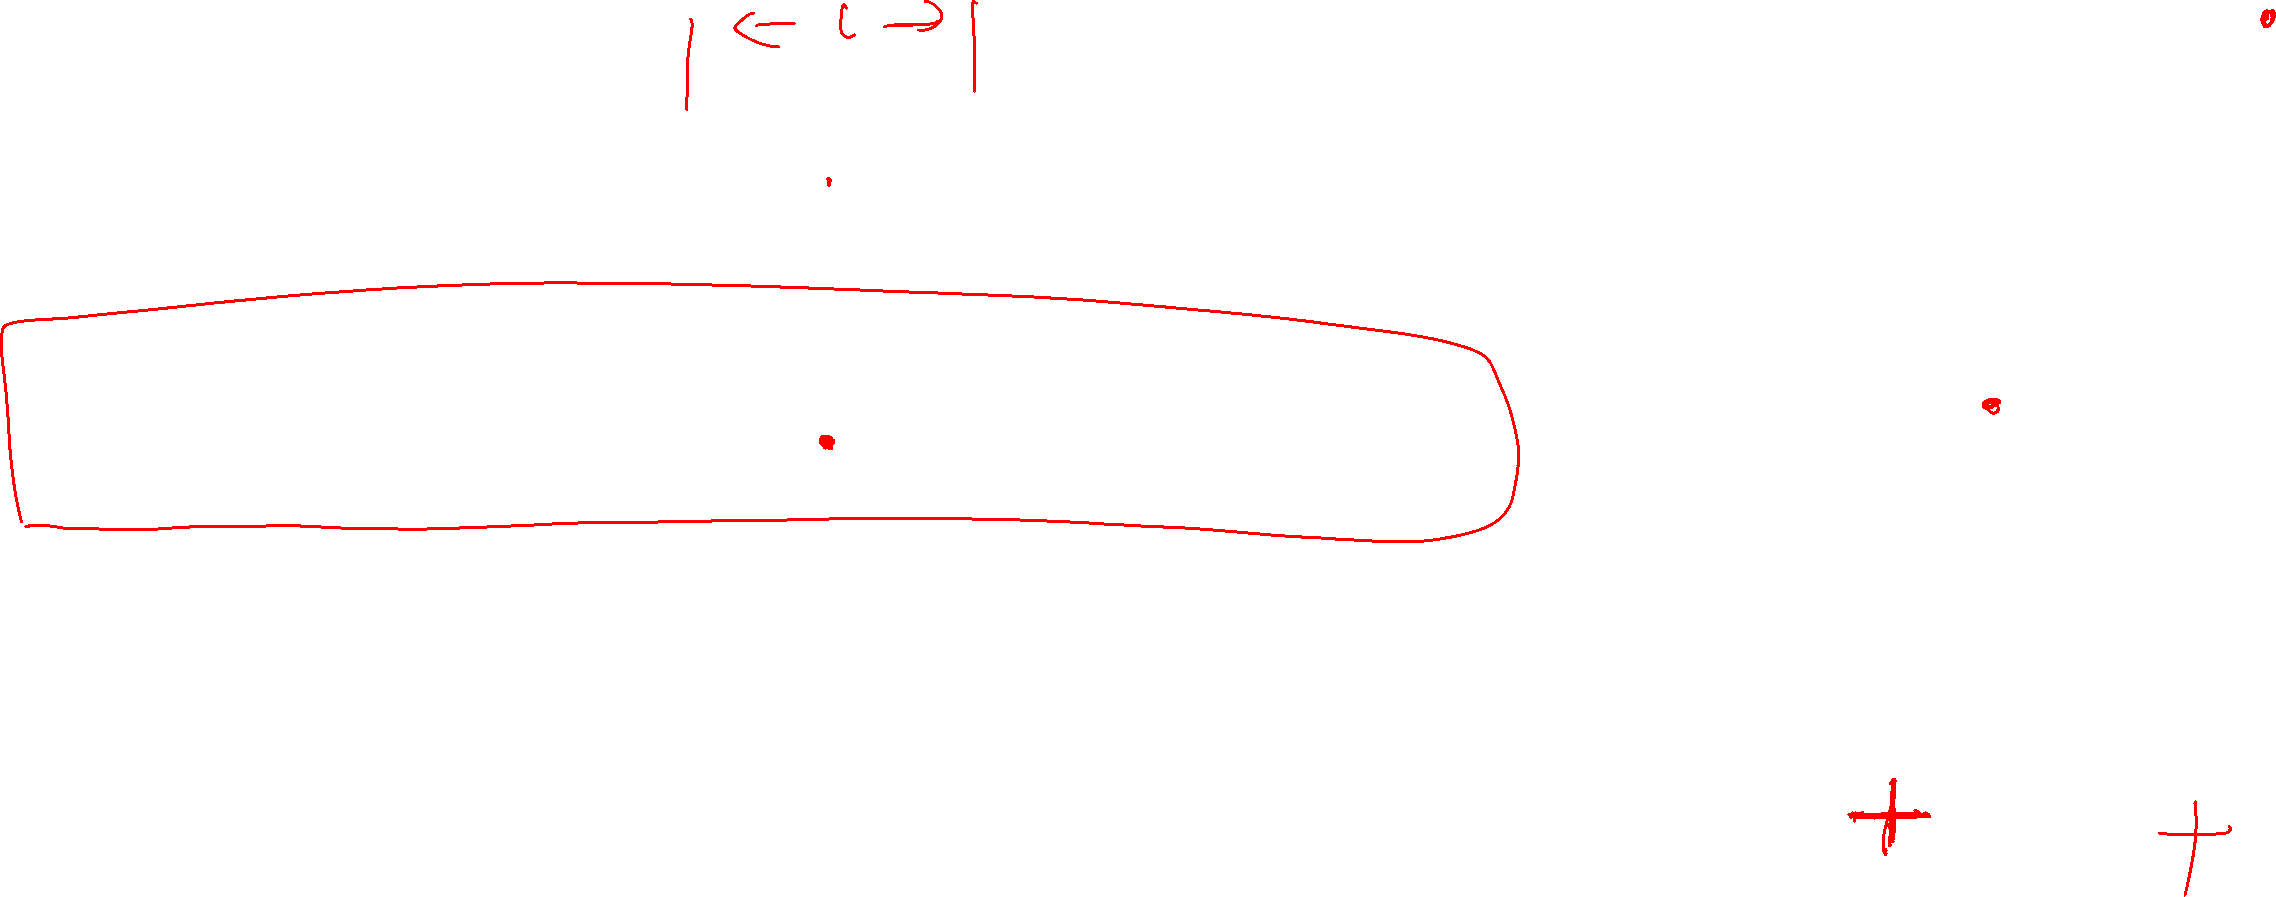 ← l →
+ +